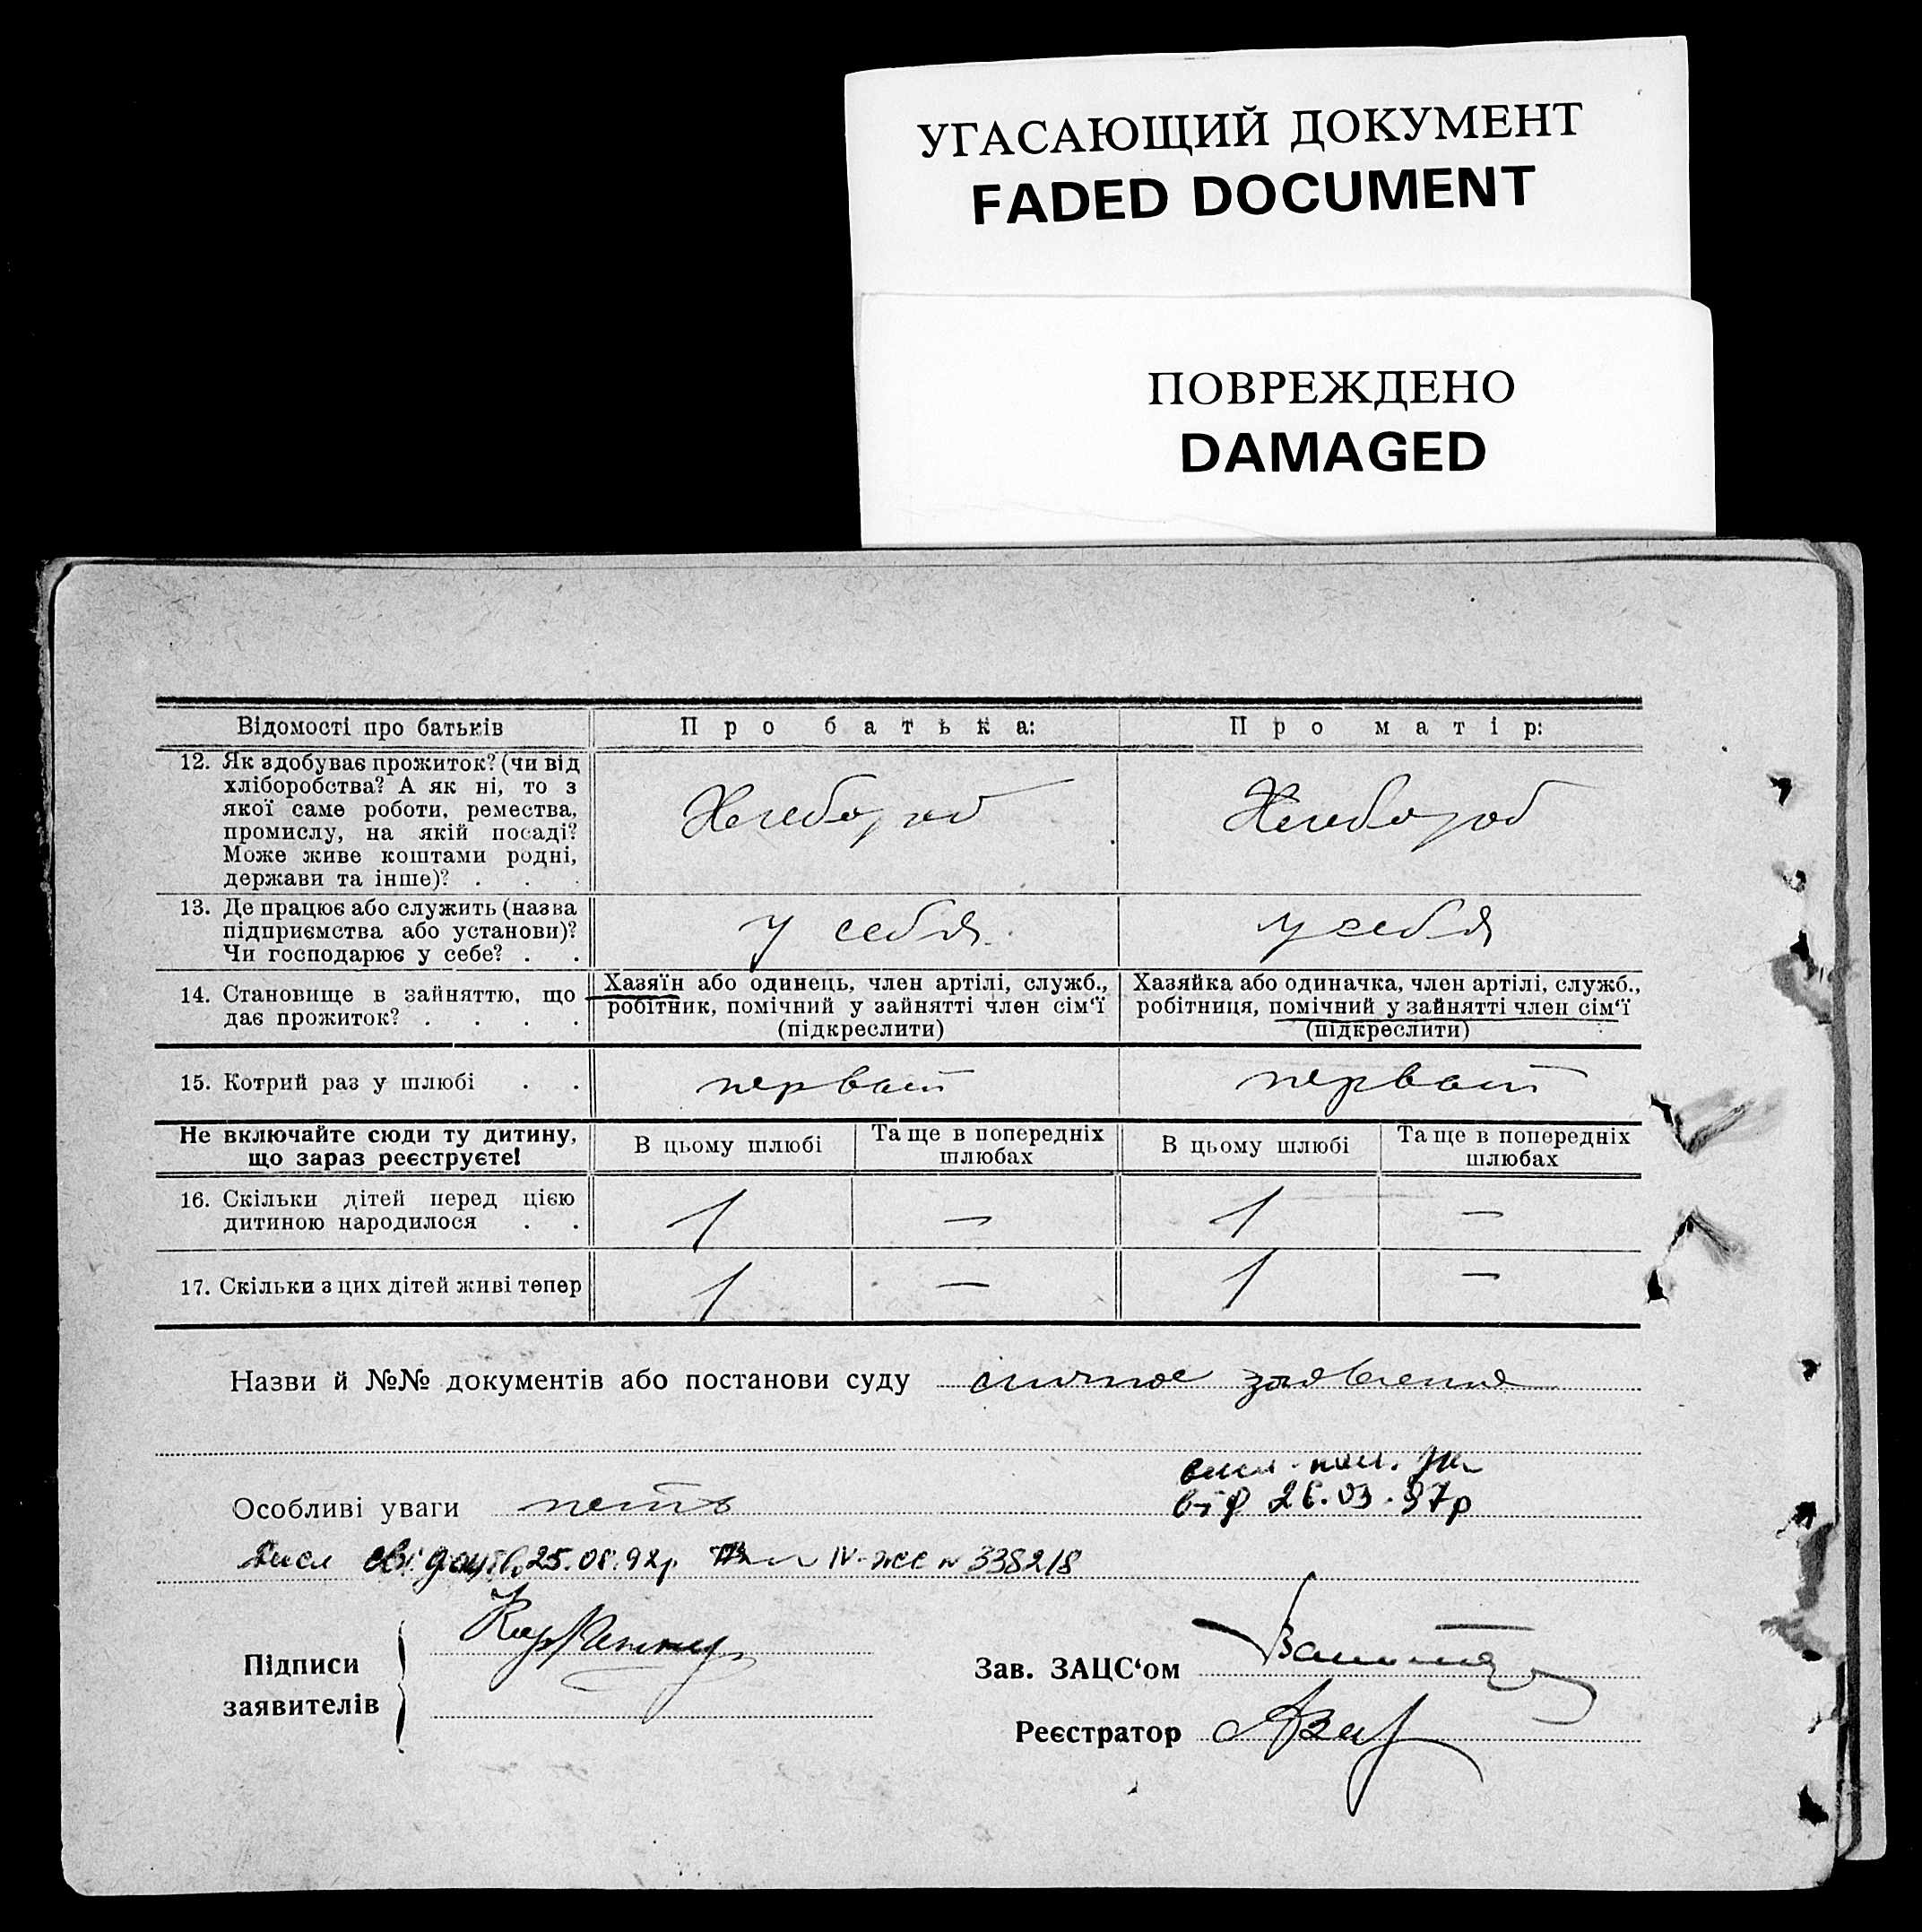 УГАСАЮЩИЙ ДОКУМЕНТ
FADED DOCUMENT
ПОВРЕЖДЕНО
DAMAGED
Відомості про батьків
Про батька:
Про матір:
12. Як здобуває прожиток? (чи від
хліборобства? А як ні, то з
якої саме роботи, ремества,
промислу, на якій посаді?
Може живе коштами родні,
держави та інше)? . . .
Хлебороб
Хлебороб
13. Де працює або служить (назва
підприємства або установи)?
Чи господарює у себе? . .
у себя
у себя
14. Становище в зайняттю, що
дає прожиток? . . . .
Хазяїн або одинець, член артілі, служб.,
робітник, помічний у зайнятті член сім'ї
(підкреслити)
Хазяйка або одиначка, член артілі, служб.,
робітниця, помічний у зайнятті член сім'ї
(підкреслити)
15. Котрий раз у шлюбі . .
первый
первый
Не включайте сюди ту дитину,
що зараз реєструєте!
В цьому шлюбі
Та ще в попередніх
шлюбах
В цьому шлюбі
Та ще в попередніх
шлюбах
16. Скільки дітей перед цією
дитиною народилося . .
1
—
1
—
17. Скільки з цих дітей живі тепер
1
—
1
—
Назви й №№ документів або постанови суду личное заявление
Особливі уваги нет
від 26.03.97р
25.08.92р. IV-ЖС № 338218
Підписи
заявителів
Зав. ЗАЦС'ом
Реєстратор